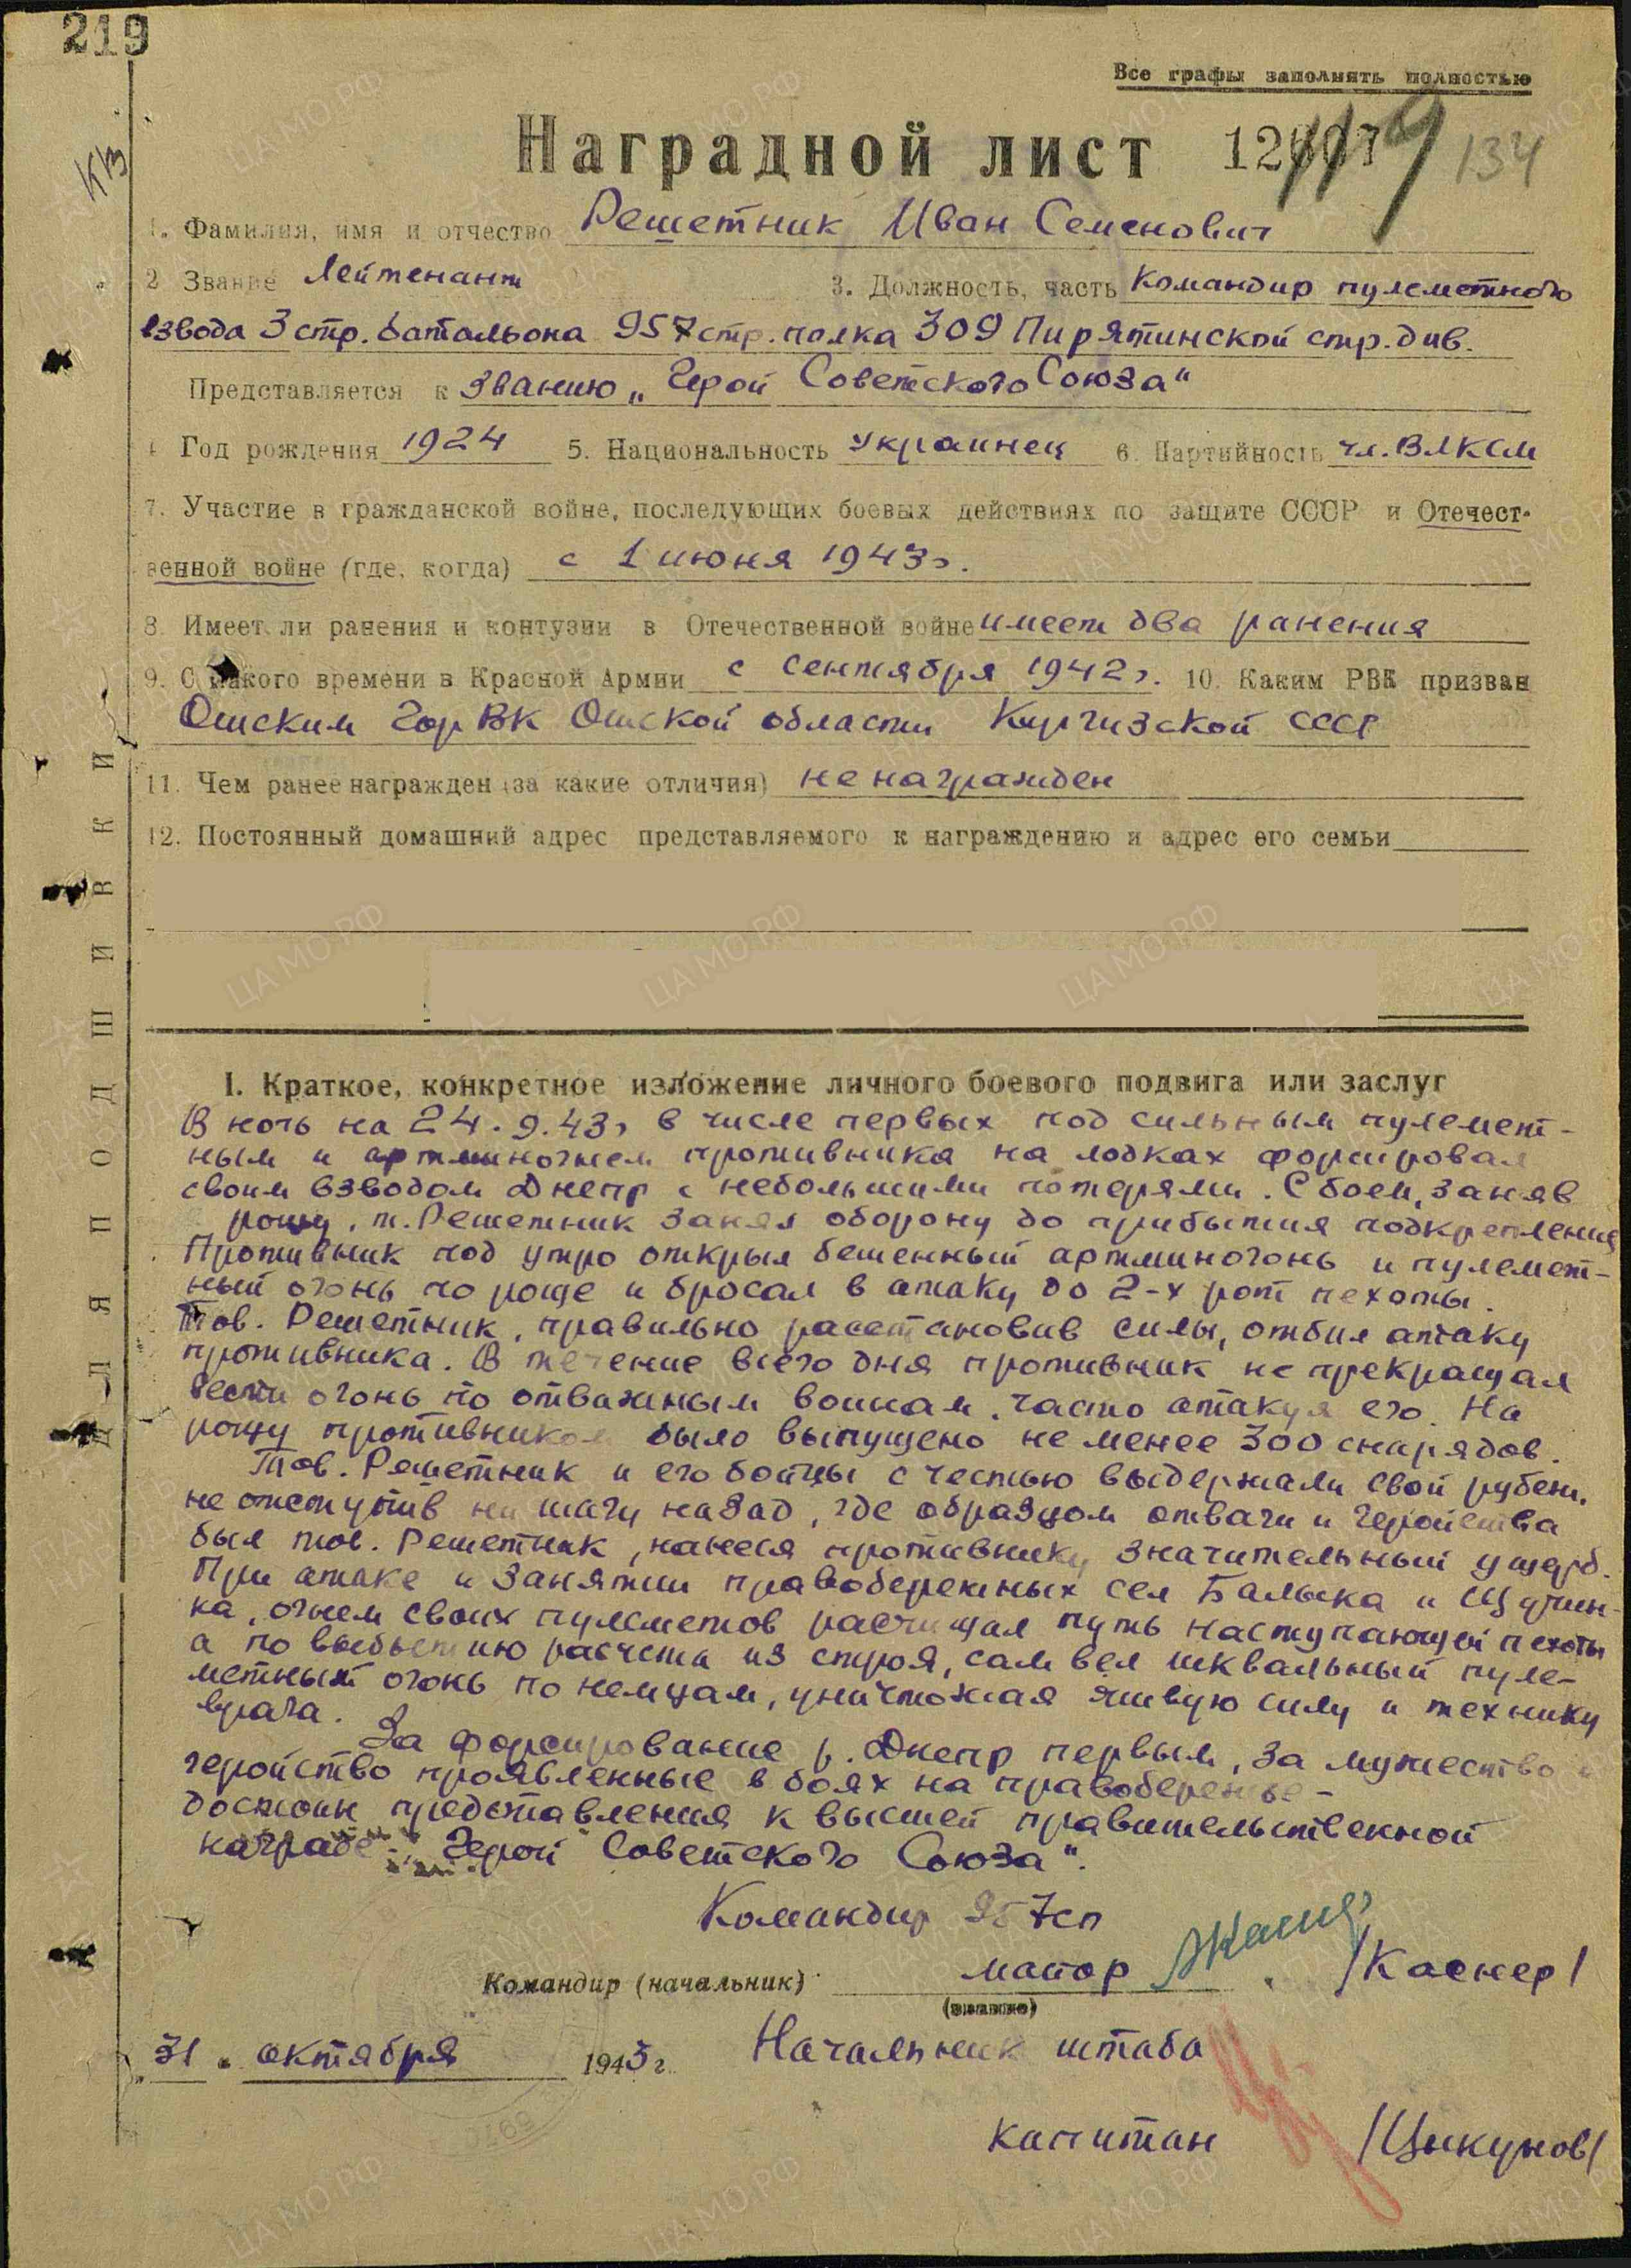 219
Все графы заполнять полностью
КВ
Наградной лист 134
1. Фамилия, имя и отчество Решетник Иван Семенович
2 Звание Лейтенант 3. Должность, часть Командир пулеметного
взвода 3 стр. батальона 957 стр. полка 309 Пирятинской стр. див.
Представляется к званию „Герой Советского Союза“
4 Год рождения 1924 5. Национальность Украинец 6. Партийность чл. ВЛКСМ
7. Участие в гражданской войне, последующих боевых действиях по защите СССР и Отечест-
венной войне (где, когда) с 1 июня 1943г.
8. Имеет ли ранения и контузии в Отечественной войне имеет два ранения
9. С какого времени в Красной Армии с сентября 1942г. 10. Каким РВК призван
Ошским ГорВК Ошской области Киргизской СССР
11. Чем ранее награжден (за какие отличия) не награжден
12. Постоянный домашний адрес представляемого к награждению и адрес его семьи
ДЛЯ ПОДШИВКИ
I. Краткое, конкретное изложение личного боевого подвига или заслуг
В ночь на 24.9.43г в числе первых под сильным пулемет-
ным и артминогнем противника на лодках форсировал
своим взводом Днепр с небольшими потерями. С боем, заняв
рощу, т. Решетник занял оборону до прибытия подкрепления
Противник под утро открыл бешенный артминогонь и пулемет-
ный огонь по роще и бросал в атаку до 2-х рот пехоты.
Тов. Решетник, правильно расстановив силы, отбил атаку
противника. В течение всего дня противник не прекращал
вести огонь по отважным воинам, часто атакуя его. На
рощу противником было выпущено не менее 300 снарядов.
Тов. Решетник и его бойцы с честью выдержали свой рубеж,
не отступив ни шагу назад, где образцом отваги и геройства
был тов. Решетник, нанеся противнику значительный ущерб.
При атаке и занятии правобережных сел Балыка и Щучин-
ка, огнем своих пулеметов расчищал путь наступающей пехоты
а по выбытию расчета из строя, сам вел шквальный пуле-
метный огонь по немцам, уничтожая живую силу и технику
врага.
За форсирование р. Днепр первым, за мужество и
геройство проявленные в боях на правобережье -
достоин представления к высшей правительственной
награде „Герой Советского Союза“.
Командир 957сп
Командир (начальник) майор /Каснер/
(звание)
„31“ октября 1943г. Начальник штаба
капитан /Цикунов/
ЦАМО РФ